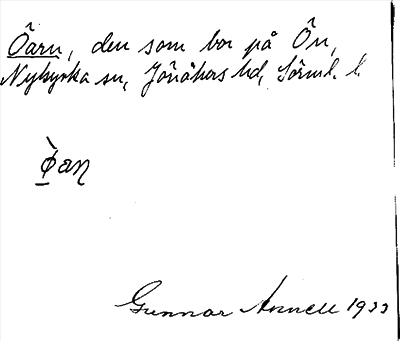 Öarn, den som bor på Ön,
Nykyrka sn, Jönåkers hd, Sörml. l.
ø̀an
Gunnar Annell 1933